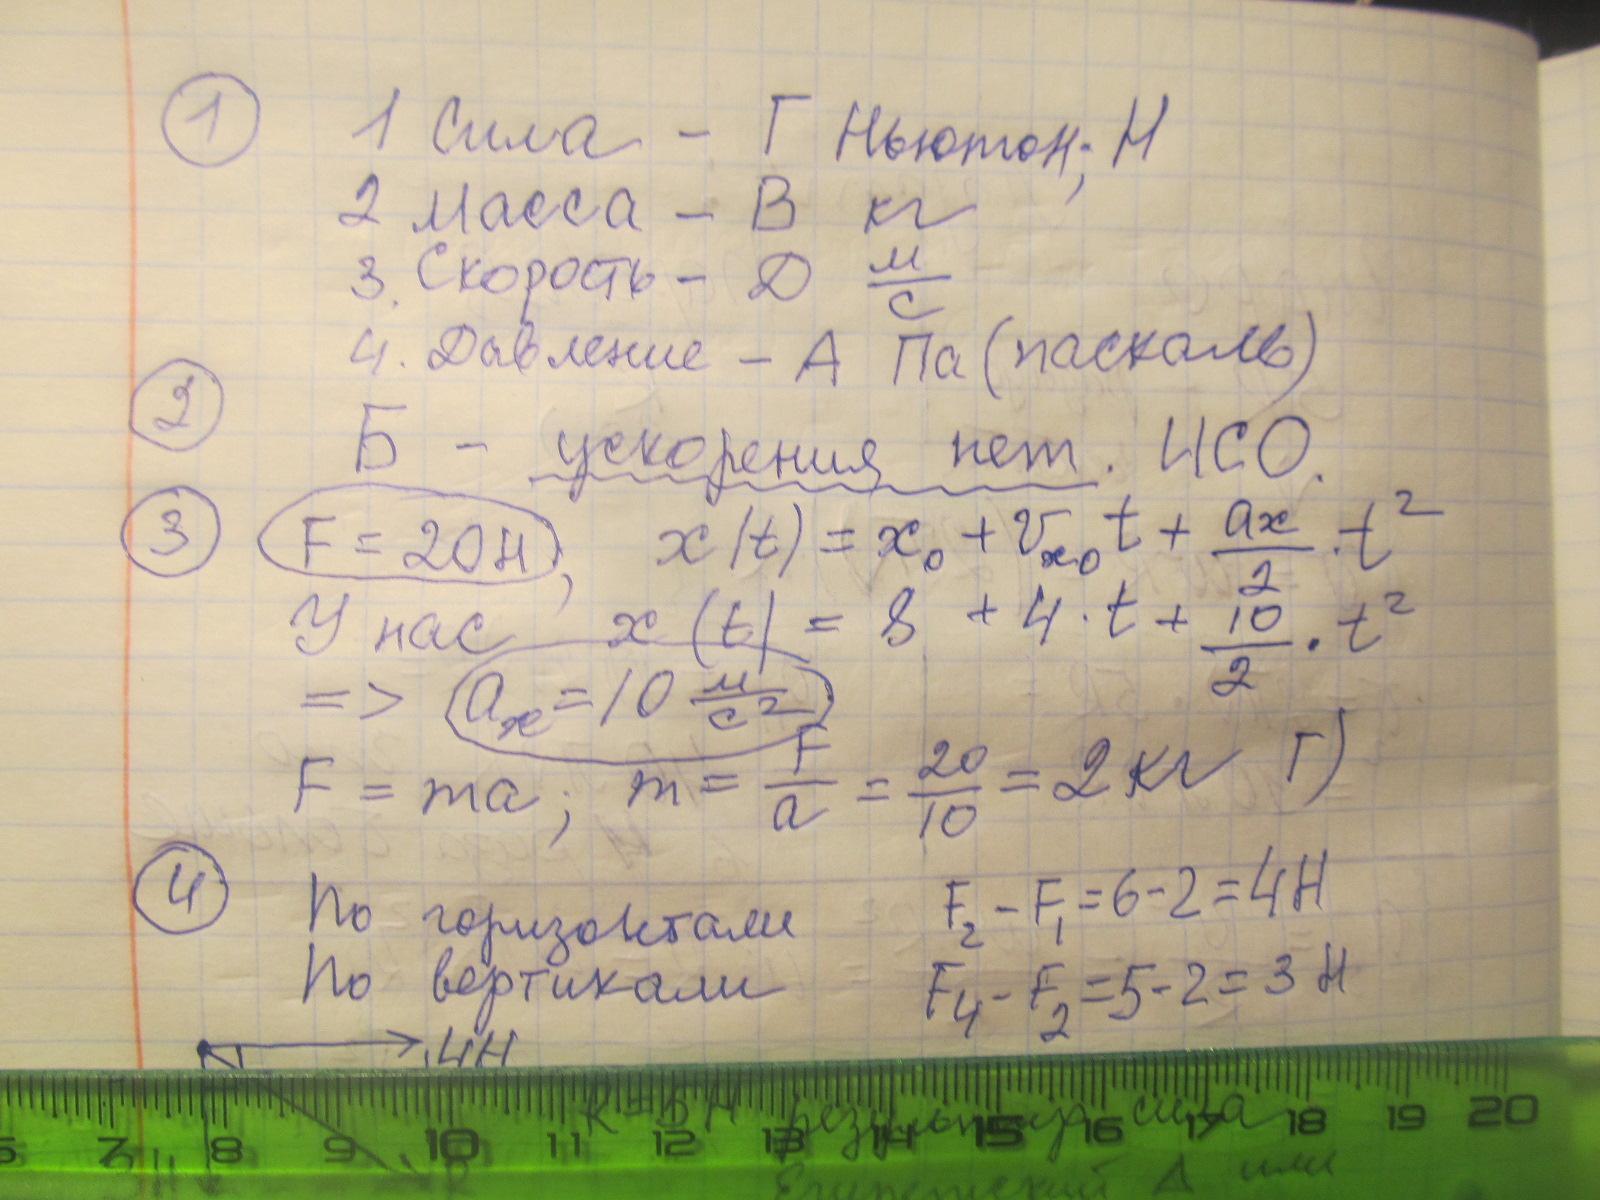 1 1 Сила – Г Ньютон; Н
2 Масса – В кг
3. Скорость – Д м/с
4. Давление – А Па (паскаль)
2 Б – ускорения нет. ИСО.
3 F = 20Н, x(t) = x₀ + Vₓ₀ t + aₓ/2 · t²
У нас x(t) = 8 + 4·t + 10/2 · t²
=> aₓ = 10 м/с²
F = ma; m = F/a = 20/10 = 2 кг Г)
4 По горизонтали F₂ – F₁ = 6 – 2 = 4Н
По вертикали F₄ – F₂ = 5 – 2 = 3 Н
4Н
R = 5 Н сила
7 8 9 10 11 12 13 14 15 16 17 18 19 20
3Н R Египетский Δ или